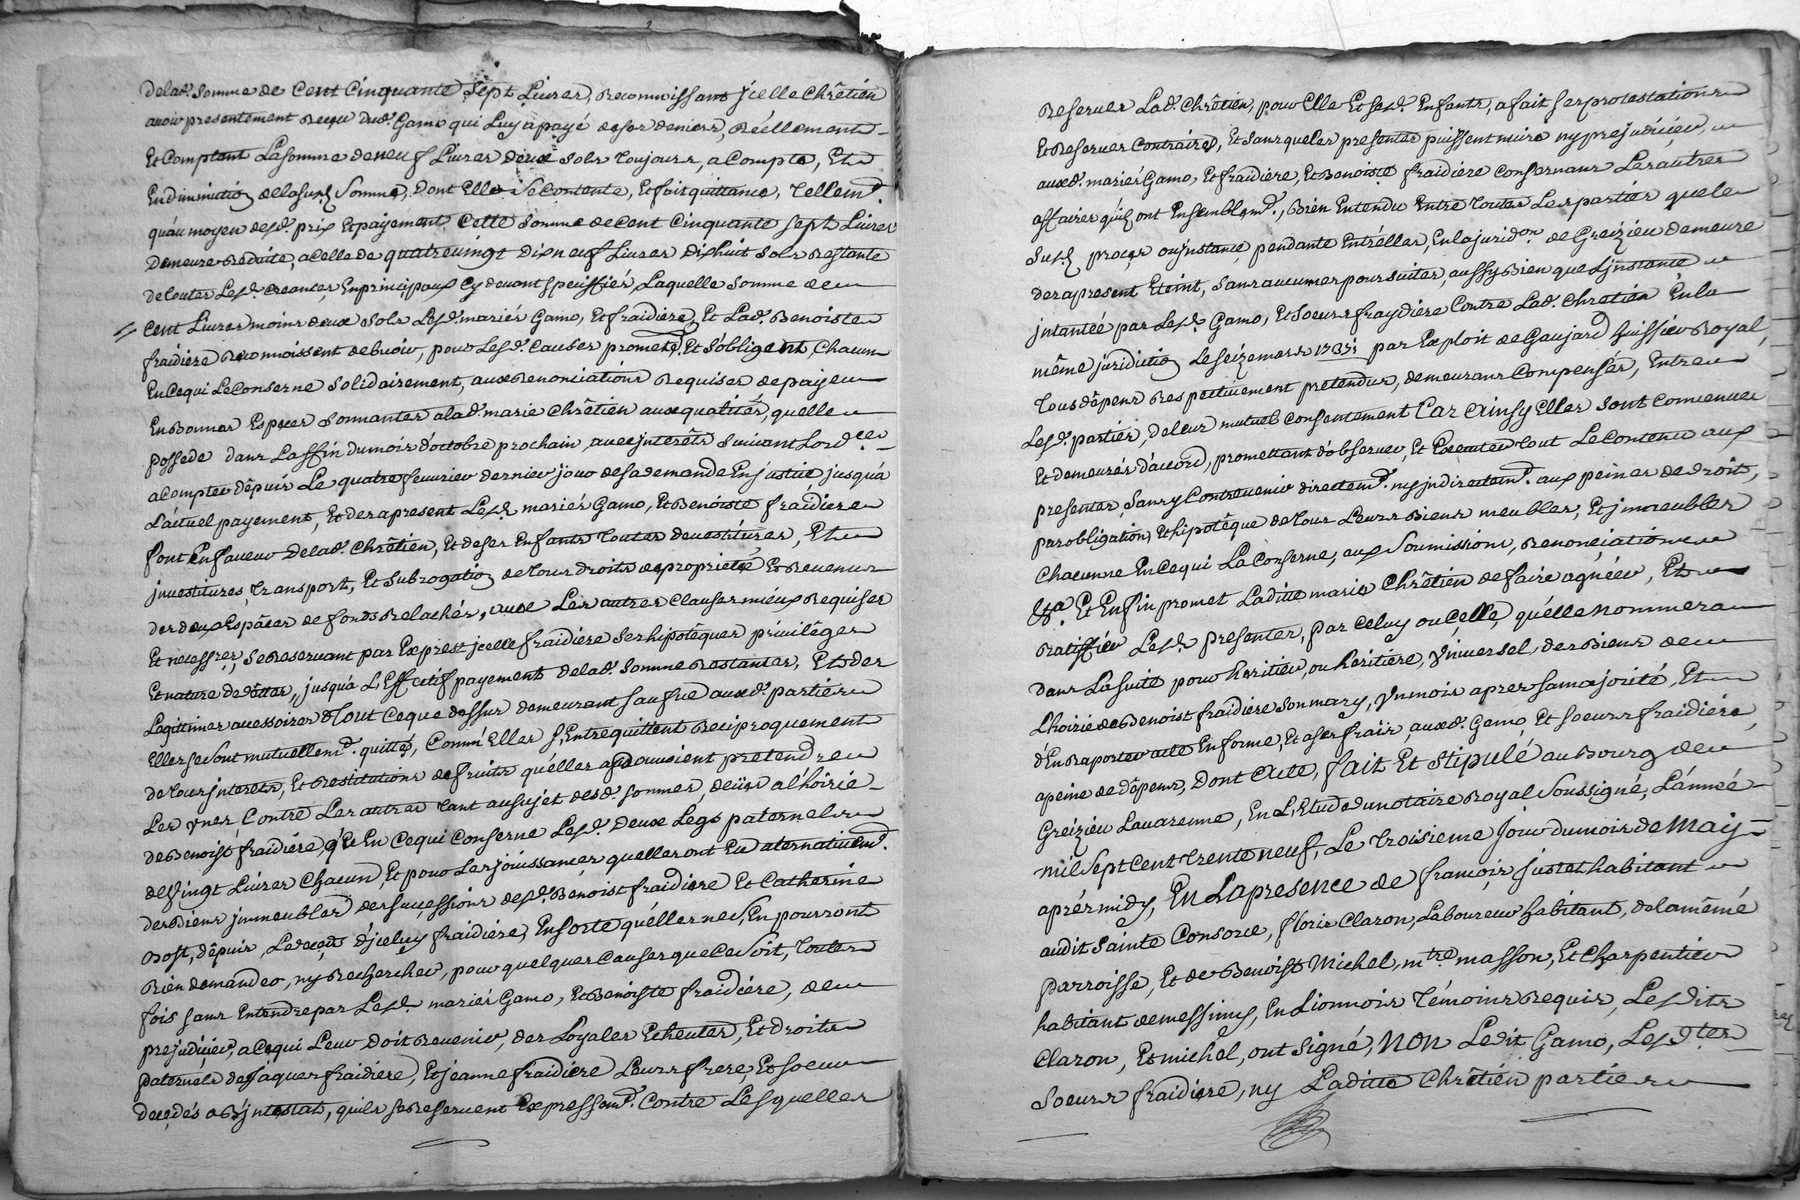 delad. Somme de Cent Cinquante Sept Livres, Reconnoissant jcelle Chrêtien
avoir presentement Reçu dud. Gamo qui Luy a payé deses deniers, Réellement
Et Comptant La Somme de neuf Livres deux sols toujours, a Compte, Et
En diminution de lasusd Somme, dont Elle Se Contente, Et fait quittance, Tellemt.
qu'au moyen desd. prix Et payement Cette Somme de Cent Cinquante Sept Livres
Demeure Reduite, a Celle de quatrevingt dix neuf Livres dix huit sols Restante
de toutes Lesd. Creances, En principaux Cy devant speciffiés, Laquelle Somme de
Cent Livres moins deux Sols Lesd. mariés Gamo, Et fraidiere, Et Lad. Benoiste
fraidiere Reconnoissent debvoir, pour Lesd. Causes promett. Et S'obligent, Chacun
En Ce qui Le Conserne Solidairement, aux Renonciations Requises de payer
En Bonnes Espèces Sonnantes alad. marie Chrêtien aux qualités, quelle
possede dans La ffin du mois d'octobre prochain, avec interêts Suivant Lord.ces
a Compter dêpuis Le quatre fevrier dernier jour de sa demande En justice jusqu'a
L'actuel payement, Et des apresent Lesd. mariés Gamo, Et Benoiste fraidiere
font En faveur delad. Chrêtien, Et de ses Enfants toutes devestitures, Et
jnvestitures, transport, Et Subrogation de tous droits de proprieté Et Revenus
des deux Espàces de fonds Relachés, avec Les autres Clauses mieux Requises
Et necessres, Se Reservant par Exprest jcelle fraidiere Ses hipotêques privilêges
Et nature de dettes, jusqu'a L'Effectif payement delad. Somme Restantes, Et des
Legitimes accessoires & Tout Ce que dessus demeurant Sauf Et aux d. parties
Elles se Sont mutuellemt. quittés, Comm' Elles S'Entrequittent Reciproquement
de tous jnterets, Et Restitutions de fruits qu'elles pouvoient pretendre
Les Unes Contre Les autres tant au sujet desd. sommes, deües a l'hoirie
de Benoist fraidiere, qu'En Ce qui Conserne Lesd. deux Legs paternels
de Vingt Livres Chacun, Et pour Les joüissances quelles ont Eu alternativemt.
des Biens jmmeubles des sucçessions desd. Benoist fraidiere Et Catherine
Bost, dêpuis Le decés d'jceluy fraidiere, En sorte qu'elles ne S'En pourront
Rien demander, ny Rechercher, pour quelques Causes que Ce Soit, toutes
fois sans Entendre par Lesd. mariés Gamo, Et Benoiste fraidiere, de
prejudiçier, a Ce qui Leur doit Revenir, des Loyales Echeutes, Et droits
paternels de Jaques fraidiere, Et jeanne fraidiere Leurs frere, Et Soeur
deçedés abjntestat, qu'ils se Reservent Expressemt. Contre Lesquelles
Reserves Lad. Chrêtien, pour Elle Et Sesd. Enfants, a fait Ses protestations
Et Reserves Contraires, Et Sans que les presentes puissent nuire ny prejudiçier,
aux d. mariés Gamo, Et fraidiere, Et Benoiste fraidiere Consernans Les autres
affaires qu'ils ont Ensemblemt., Bien Entendu Entre toutes Les parties que le
Susd. procés ou jnstançe pendante Entr'elles, En la jurid.on de Greizieu demeure
des apresent Eteint, Sans aucunes poursuites, aussy Bien que L'jnstance
jntantée par Lesd. Gamo, Et Soeurs fraydiere Contre Lad. Chretien En la
même juridiction Le Seize mars 1737. par Exploit de Gaujard huissier Royal,
tous dêpens Respectivement pretendus, demeurans Compensés, Entre
Lesd. parties, de leur mutuel Consentement Car Ainsy Elles Sont Convenues
Et demeurés d'accord, promettant d'observer, Et Executer tout Le Contenu aux
presentes, Sans y Contrevenir directemt. ny jndirectemt. aux peines de droit,
par obligation, Et hipotêque de tous Leurs Biens meubles, Et jmmeubles
Chacunne En Ce qui La Conserne, aux Soumissions, Renonçiations
&a. Et Enfin promet Laditte marie Chrêtien de faire agréer, Et
Ratiffier Lesd. presentes, par Celuy ou Celle, qu'elle nommera
dans La Suite pour heritier, ou heritiere, Universel des Biens de
L'hoirie de Benoist fraidiere Son mary, Un mois apres Sa majorité, Et
d'En Raporter acte En forme, Et a ses fraix, aux d. Gamo, Et Soeurs fraidiere,
a peine de dêpens, Dont Acte, fait Et Stipulé au Bourg de
Greizieu Lavarenne, En L'Etude du notaire Royal Soussigné, L'année
mil Sept Cent trente neuf, Le troisieme Jour du mois de May
aprés midy, En La presence de françois Justet habitant
audit Sainte Consorce, floris Claron, Laboureur habitant, de la même
parroisse, Et de Benoist Michel, mtre masson, Et Charpentier
habitant de messimy, En Lionnois témoins Requis, Lesdits
Claron, Et michel, ont Signé, NON Ledit Gamo, Lesd.tes
Soeurs fraidiere, ny Laditte Chrêtien parties